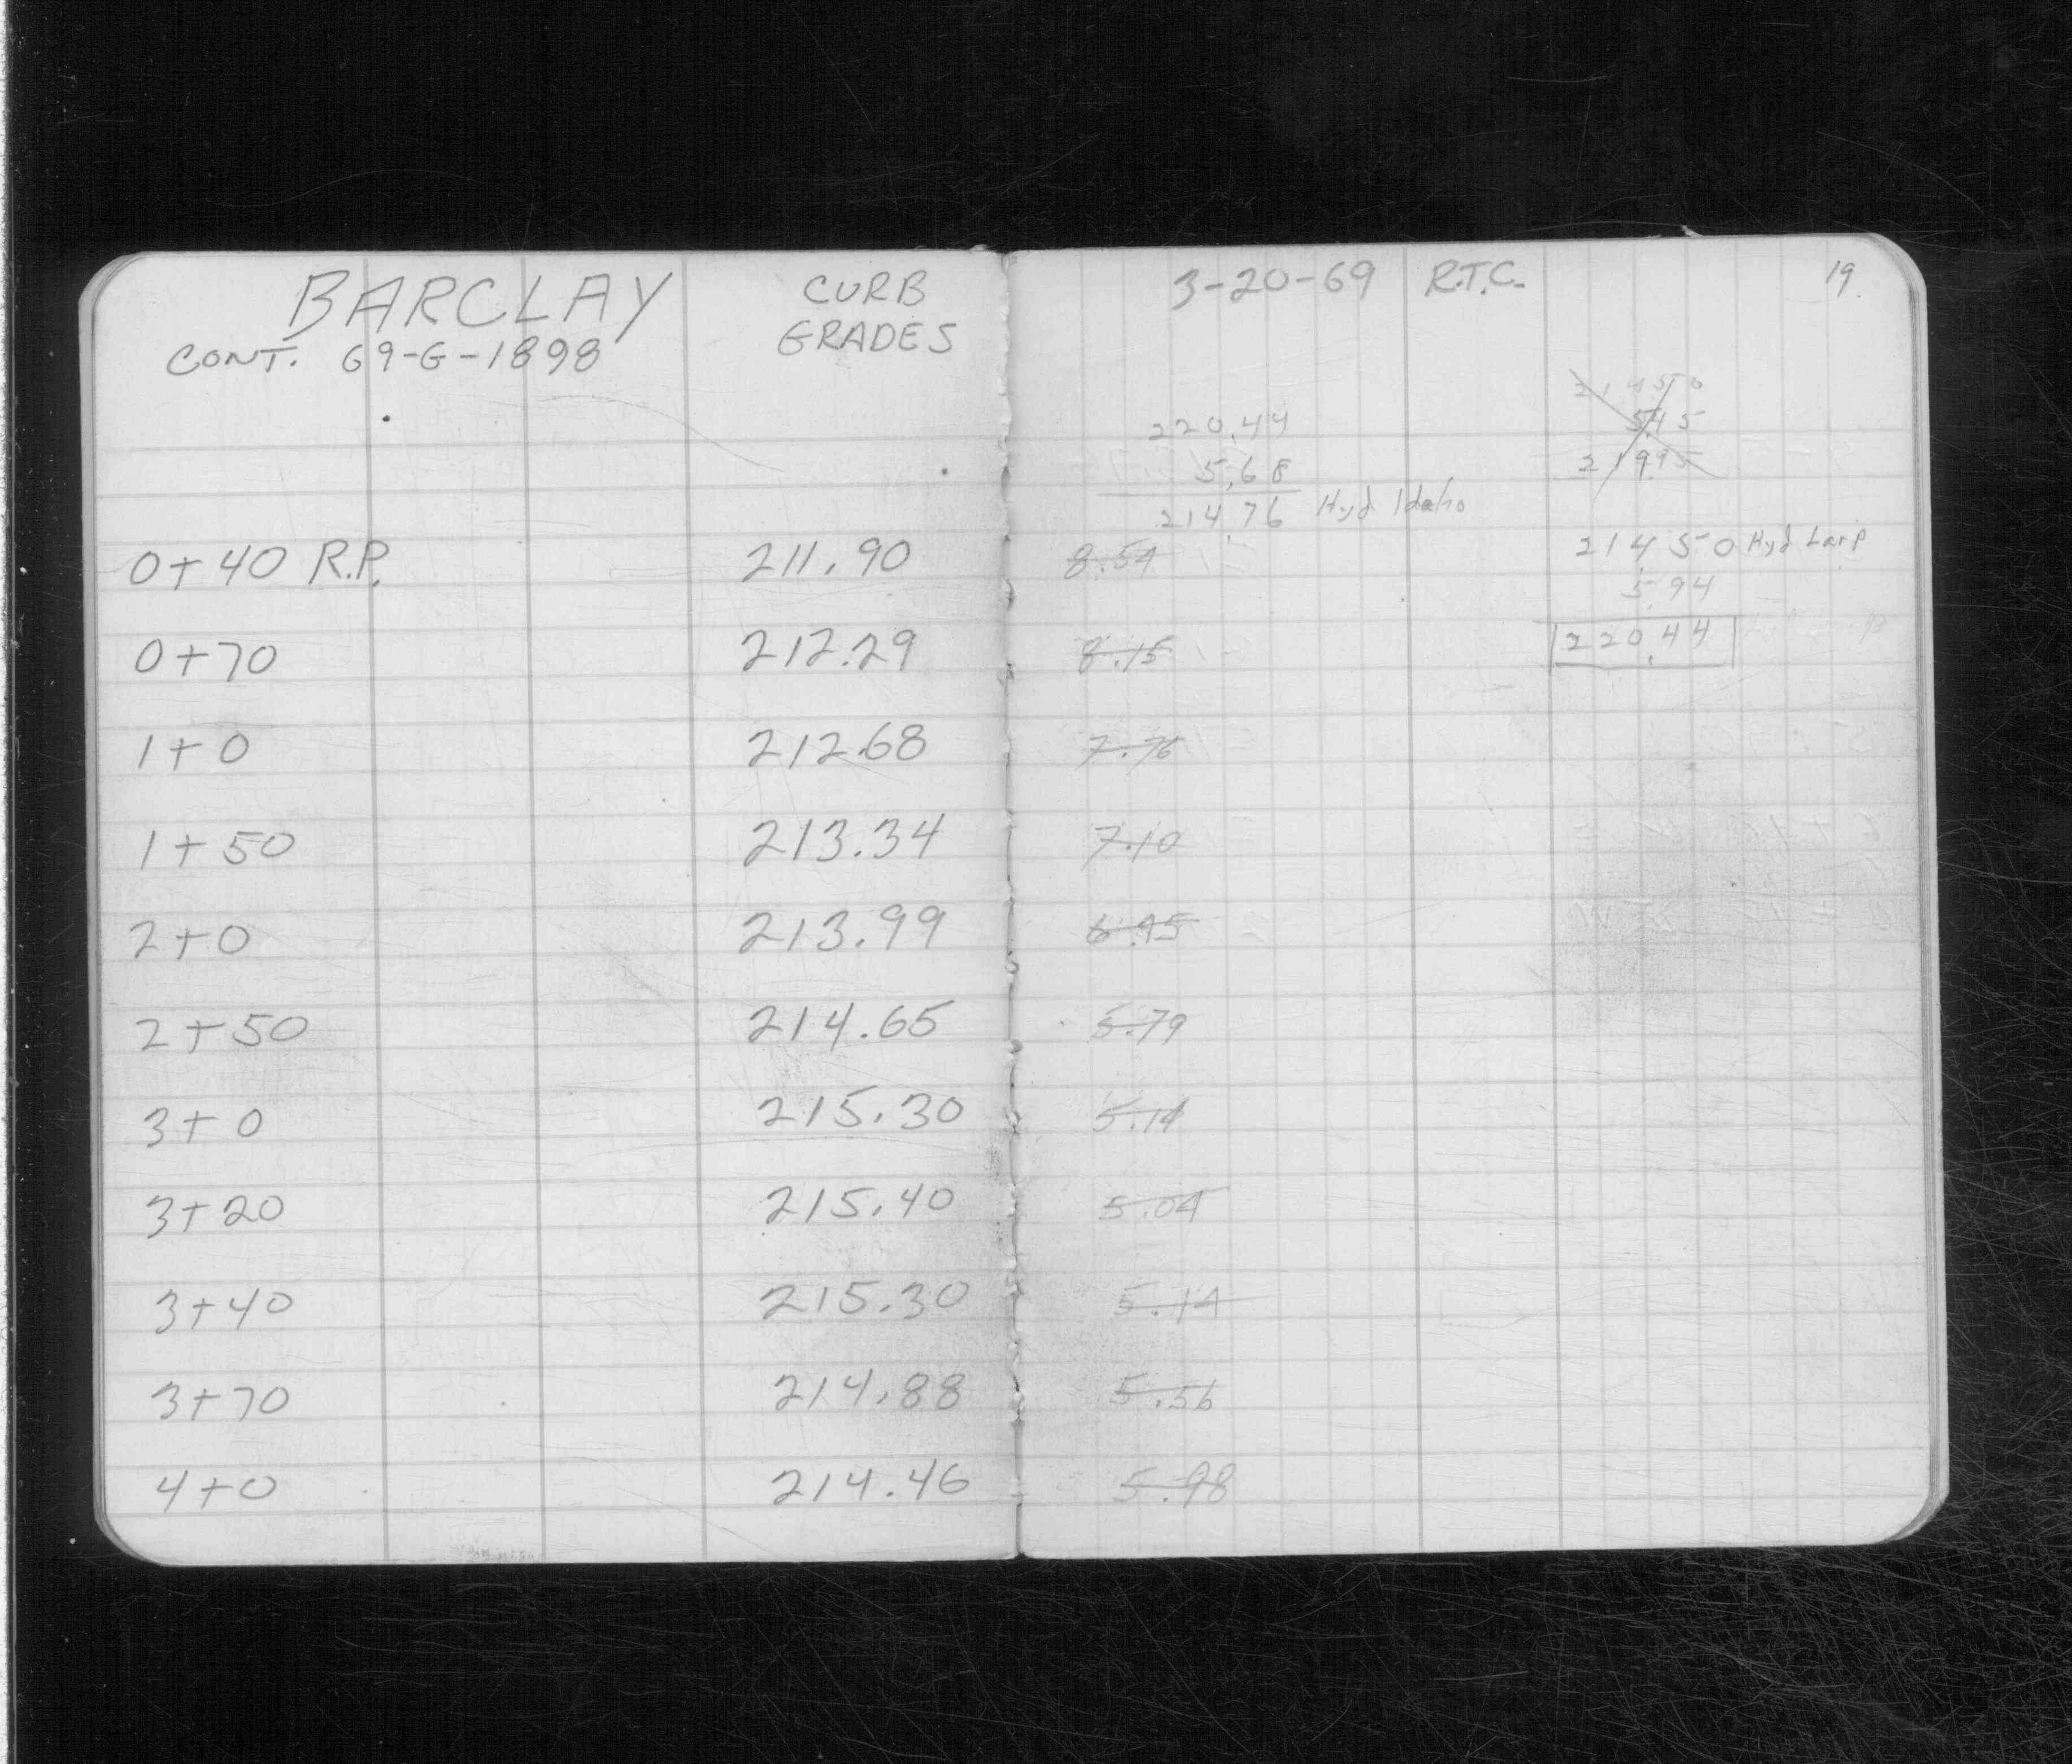 BARCLAY
CONT. 69-G-1898
CURB
GRADES
0+40 R.P. 211.90
0+70 212.29
1+0 212.68
1+50 213.34
2+0 213.99
2+50 214.65
3+0 215.30
3+20 215.40
3+40 215.30
3+70 214.88
4+0 214.46
3-20-69 R.T.C. 19.
220.44
5.68
214.76 Hyd Idaho
21450
545
21995
214.50 Hyd Larp
5.94
220.44
8.54
8.15
7.76
7.10
6.45
5.79
5.14
5.04
5.14
5.56
5.98